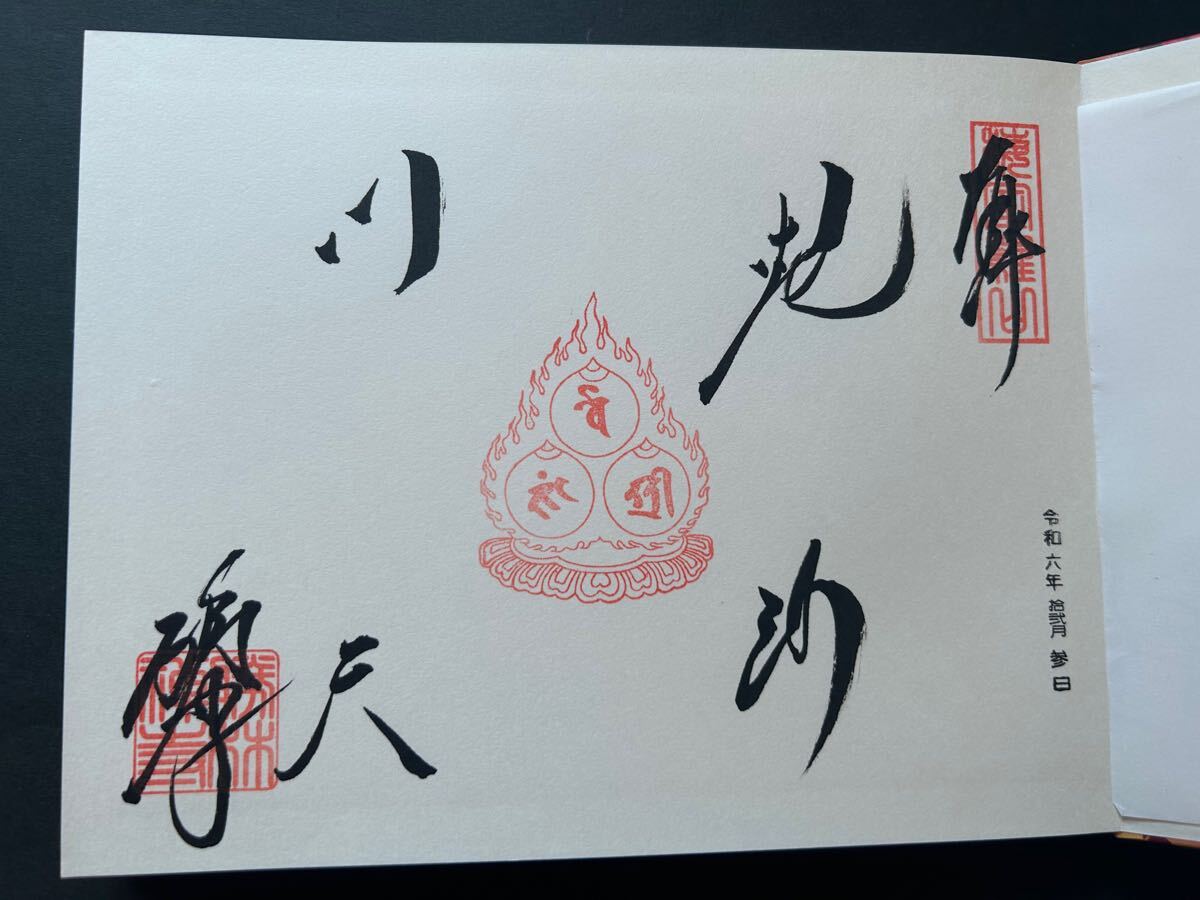 奉拝
令和六年 拾弐月 参日
毘沙
門天
勝林寺